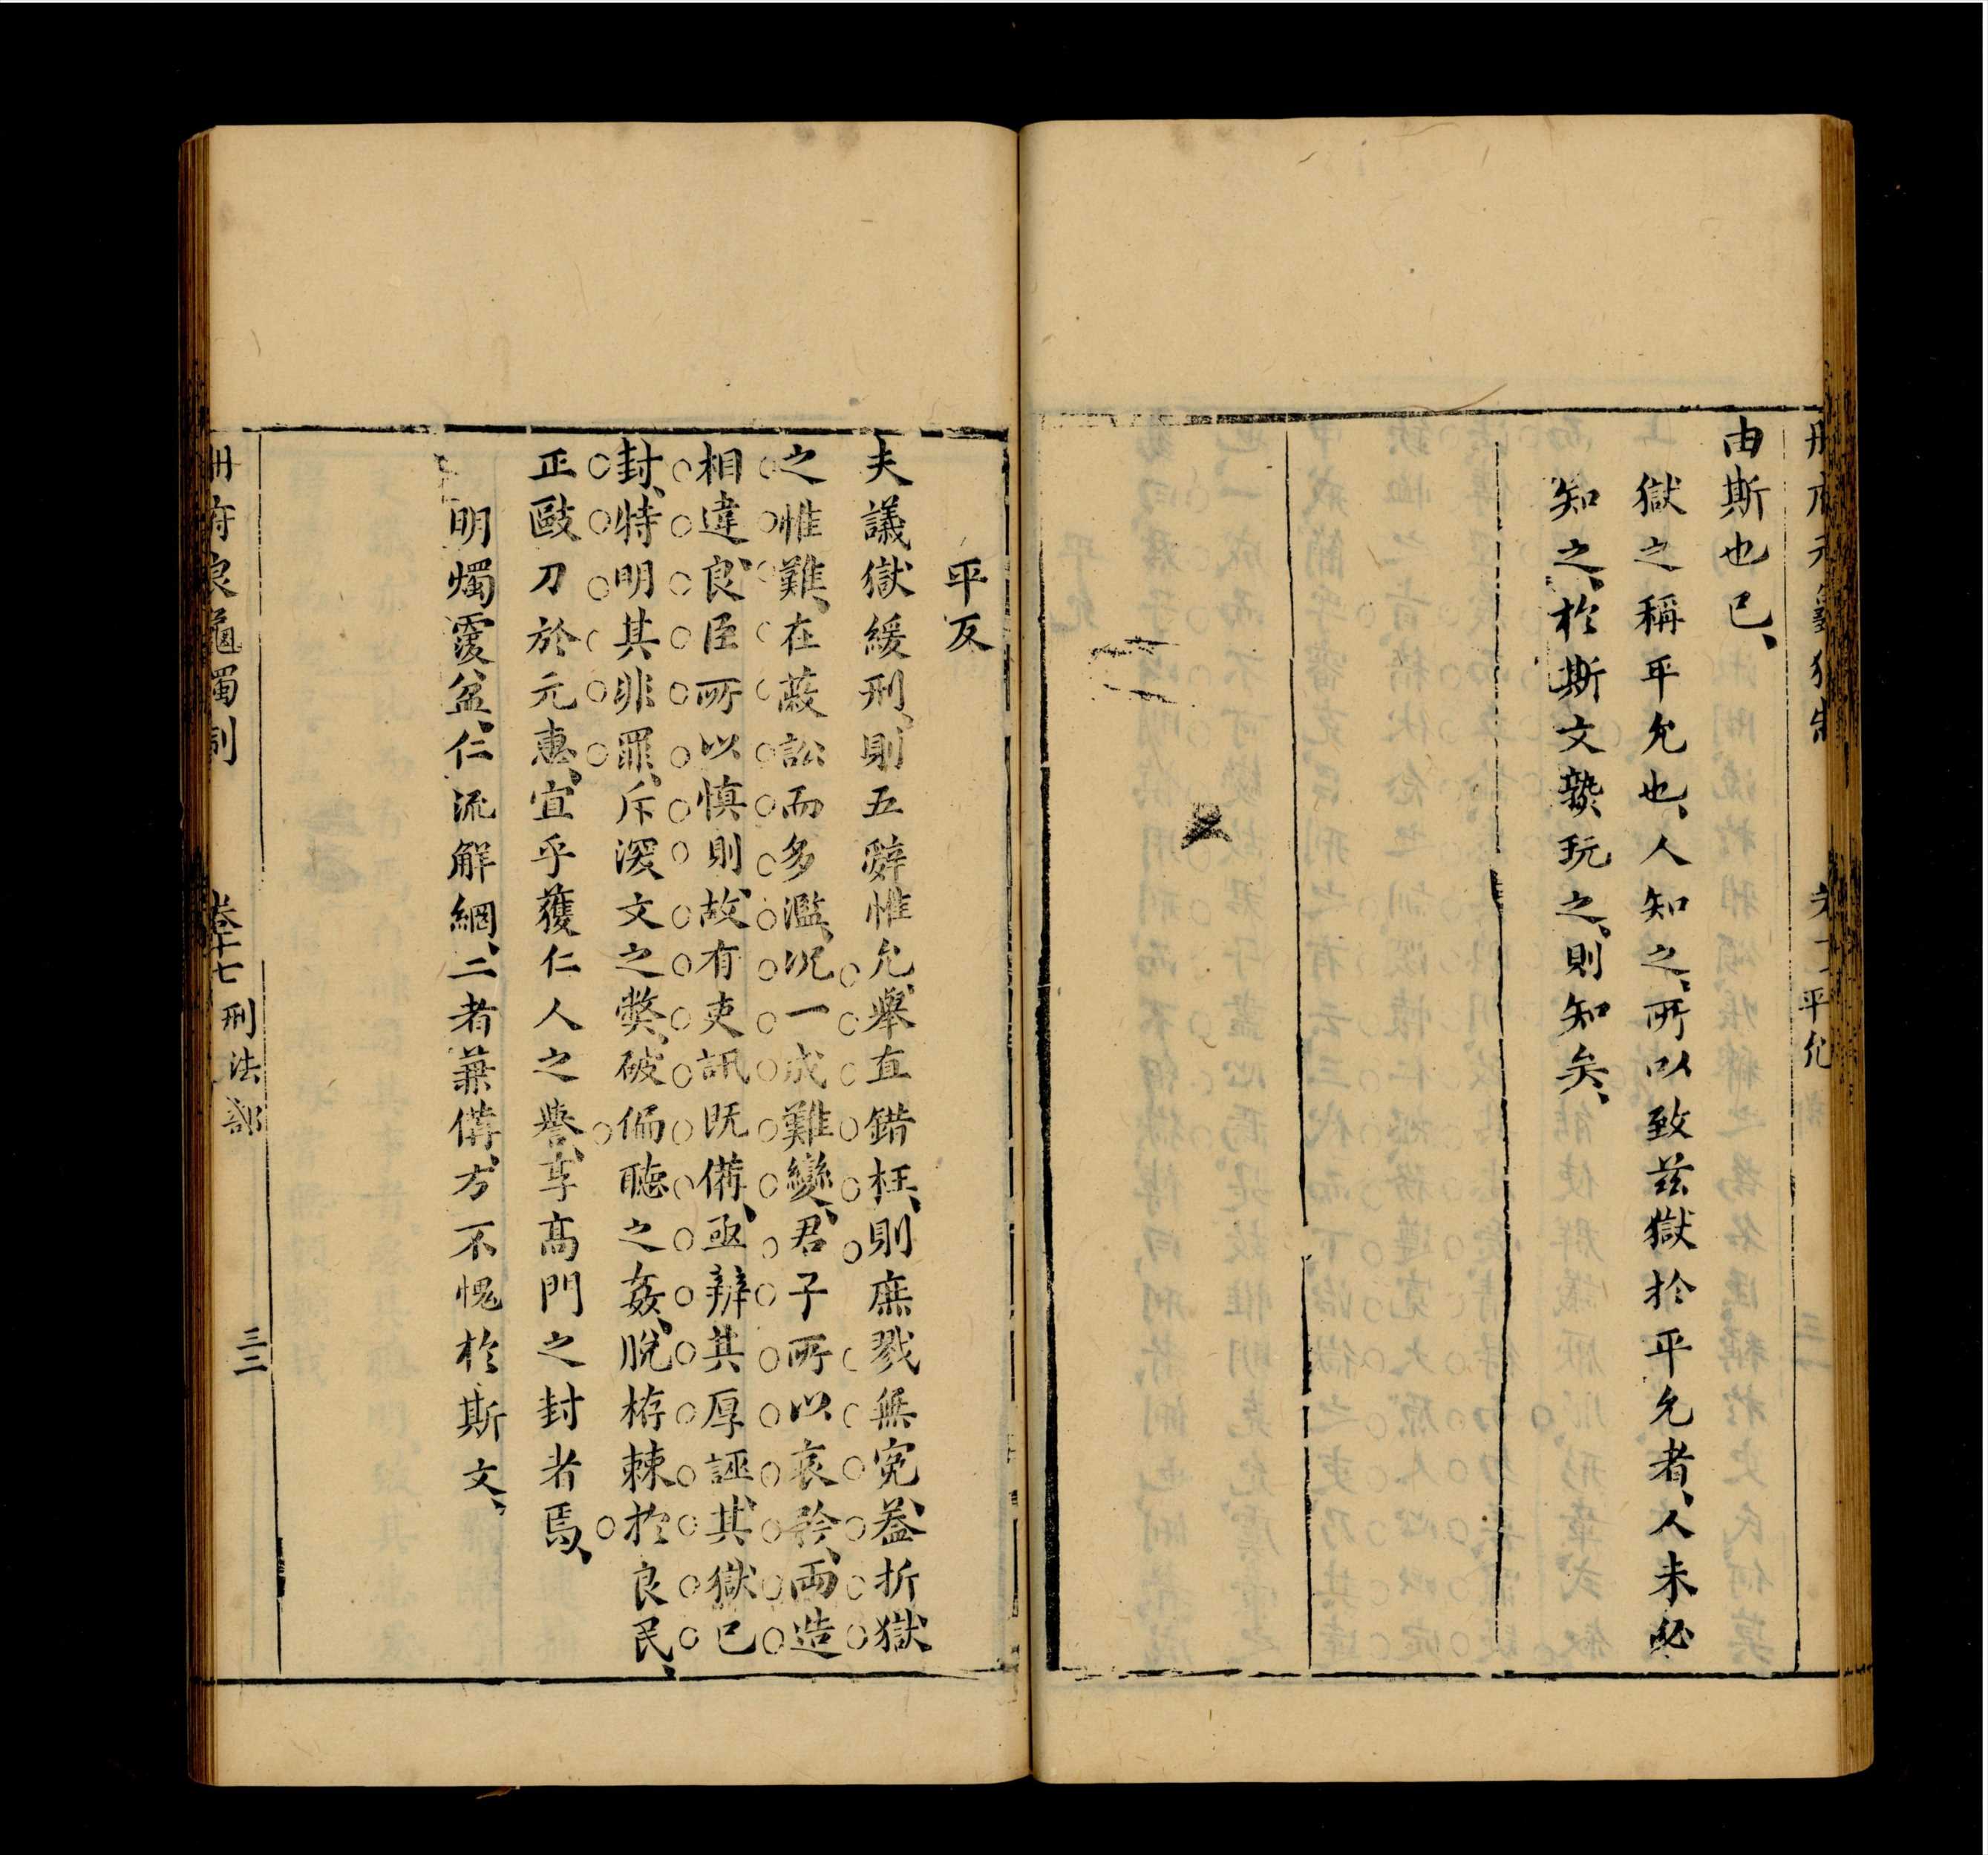 由斯也已、
獄之稱平允也、人知之、所以致茲獄於平允者、人未必
知之、於斯文褻玩之、則知矣、
平允
平反
夫議獄緩刑、則五辭惟允、舉直錯枉、則庶戮無冤、蓋折獄
之惟難、在蔽訟而多濫、況一成難變、君子所以哀矜、兩造
相違、良臣所以慎則、故有吏訊既備、亟辨其厚誣、其獄已
封、特明其非罪、斥深文之弊、破偏聽之姦、脫栫棘於良民、
正歐刀於元惡、宜乎獲仁人之譽、享高門之封者焉、
明燭覆盆、仁流解網、二者兼備、方不愧於斯文、
冊府
卷十七 刑法部
三二